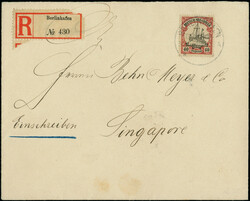 R
Berlinhafen
№ 430
Herren Behn Meyer & Co
Einschreiben
Singapore